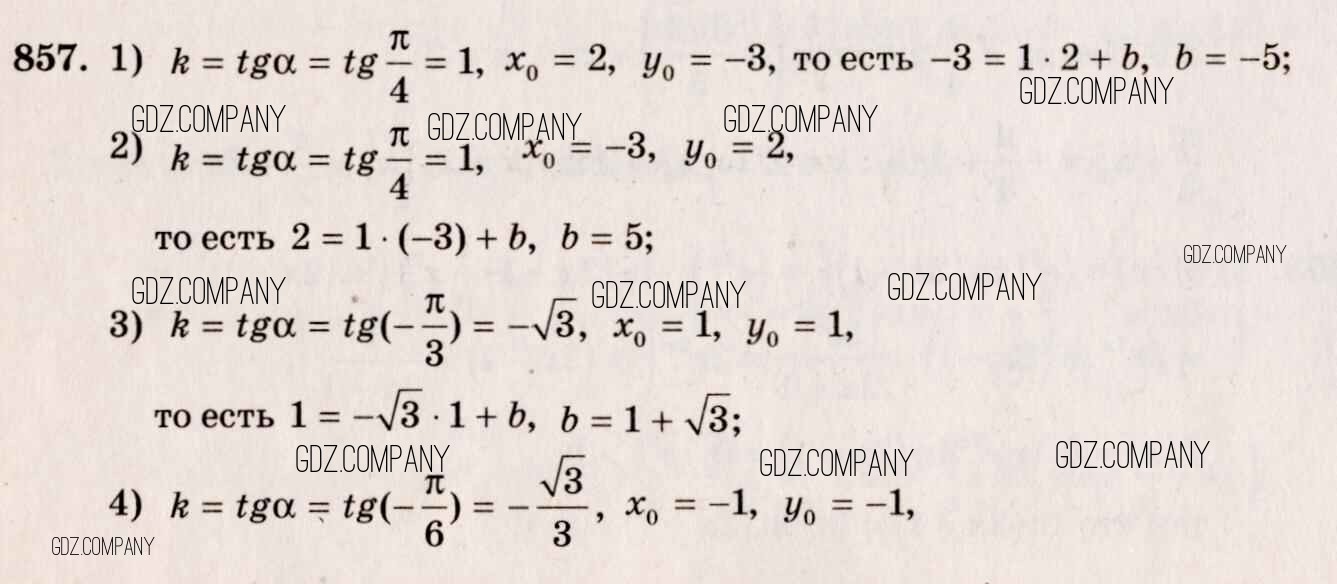 857. 1) k = tgα = tg π/4 = 1, x₀ = 2, y₀ = −3, то есть −3 = 1 · 2 + b, b = −5;
GDZ.COMPANY GDZ.COMPANY GDZ.COMPANY GDZ.COMPANY
2) k = tgα = tg π/4 = 1, x₀ = −3, y₀ = 2,
то есть 2 = 1 · (−3) + b, b = 5;
GDZ.COMPANY
GDZ.COMPANY GDZ.COMPANY GDZ.COMPANY
3) k = tgα = tg(−π/3) = −√3, x₀ = 1, y₀ = 1,
то есть 1 = −√3 · 1 + b, b = 1 + √3;
GDZ.COMPANY GDZ.COMPANY GDZ.COMPANY
4) k = tgα = tg(−π/6) = −√3/3, x₀ = −1, y₀ = −1,
GDZ.COMPANY